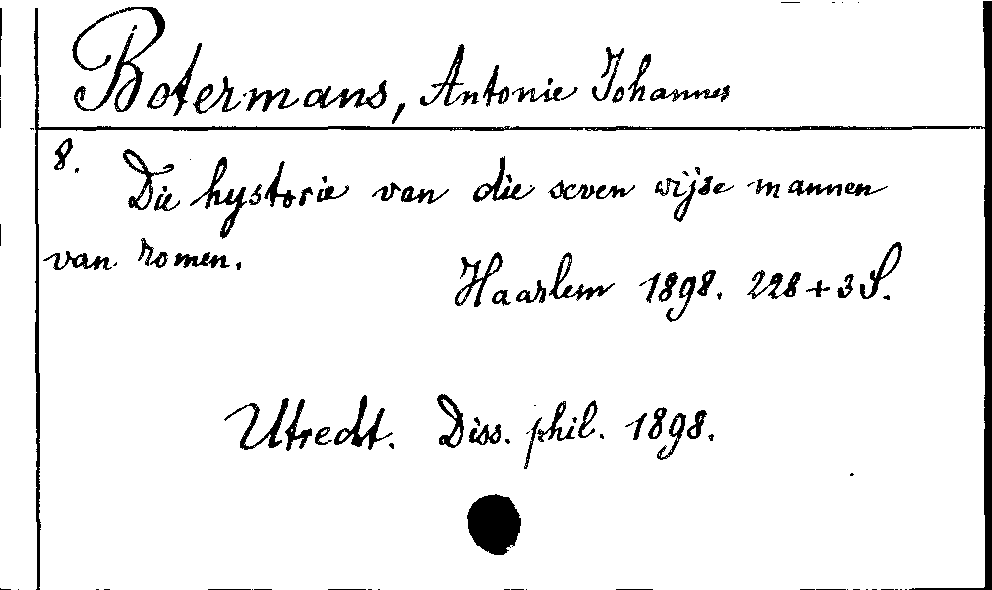 Botermans, Antonie Johannes
8.
Die hystorie van die seven wijse mannen
van romen.
Haarlem 1898. 228+3 S.
Utrecht. Diss. phil. 1898.